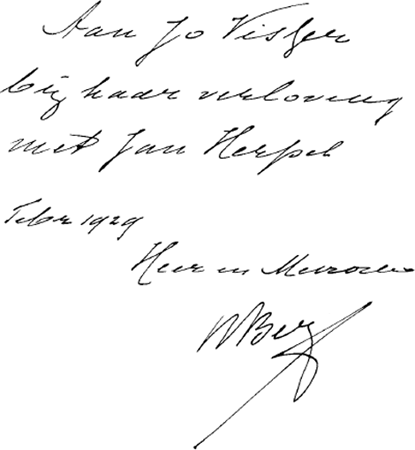 Aan Jo Visser
bij haar verloving
met Jan Herpel
Febr 1929
Heer en Mevrouw